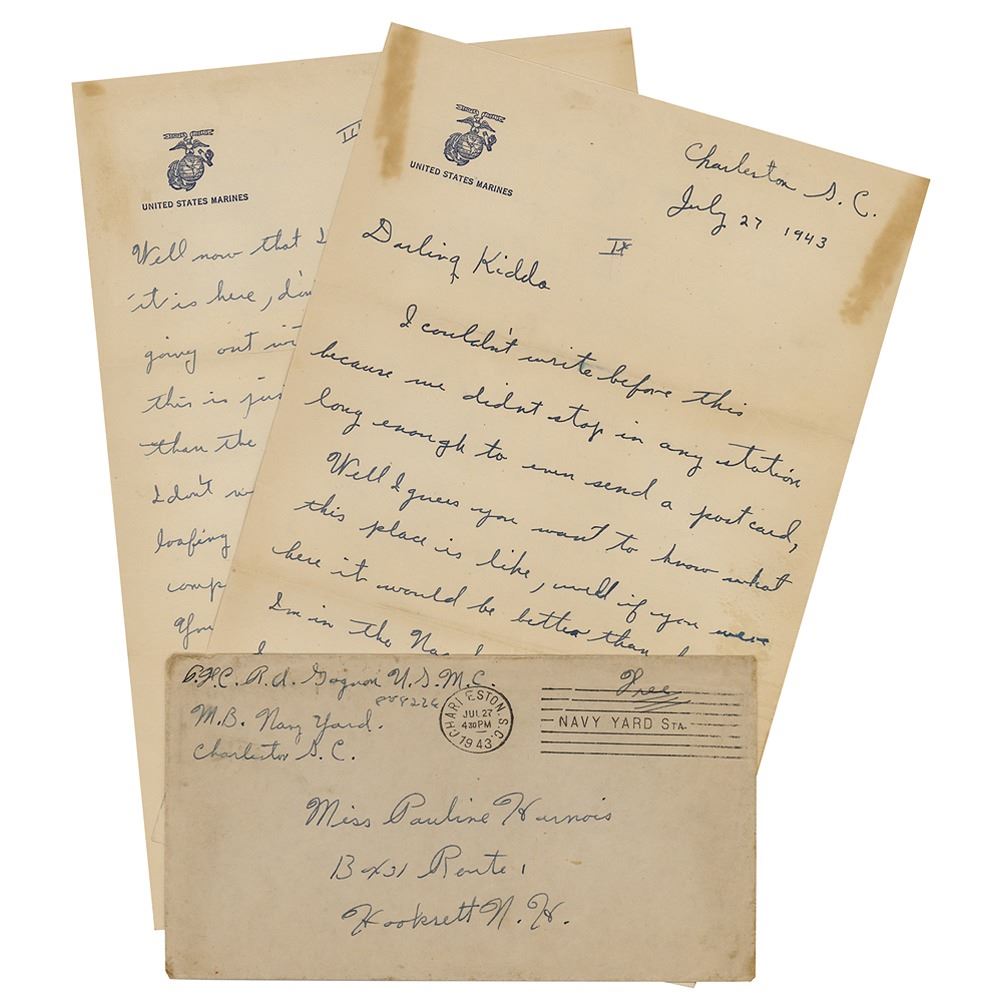 UNITED STATES MARINES
III
Well now that I
it is here, din
going out wi
this is jus
than the
I don't w
loafing
comp
You
UNITED STATES MARINES
Charleston S.C.
July 27 1943
Darling Kiddo
I couldn't write before this
because we didnt stop in any station
long enough to even send a postcard,
Well I guess you want to know what
this place is like, well if you were
here it would be better than
Im in the Na
P.F.C. R.A. Gagnon U.S.M.C.
M.B. Navy Yard.
Charleston S.C.
CHARLESTON, S.C.
JUL 27
4 30 PM
1943
Free
NAVY YARD STA.
Miss Pauline Harnois
Box 31 Route 1
Hooksett N.H.